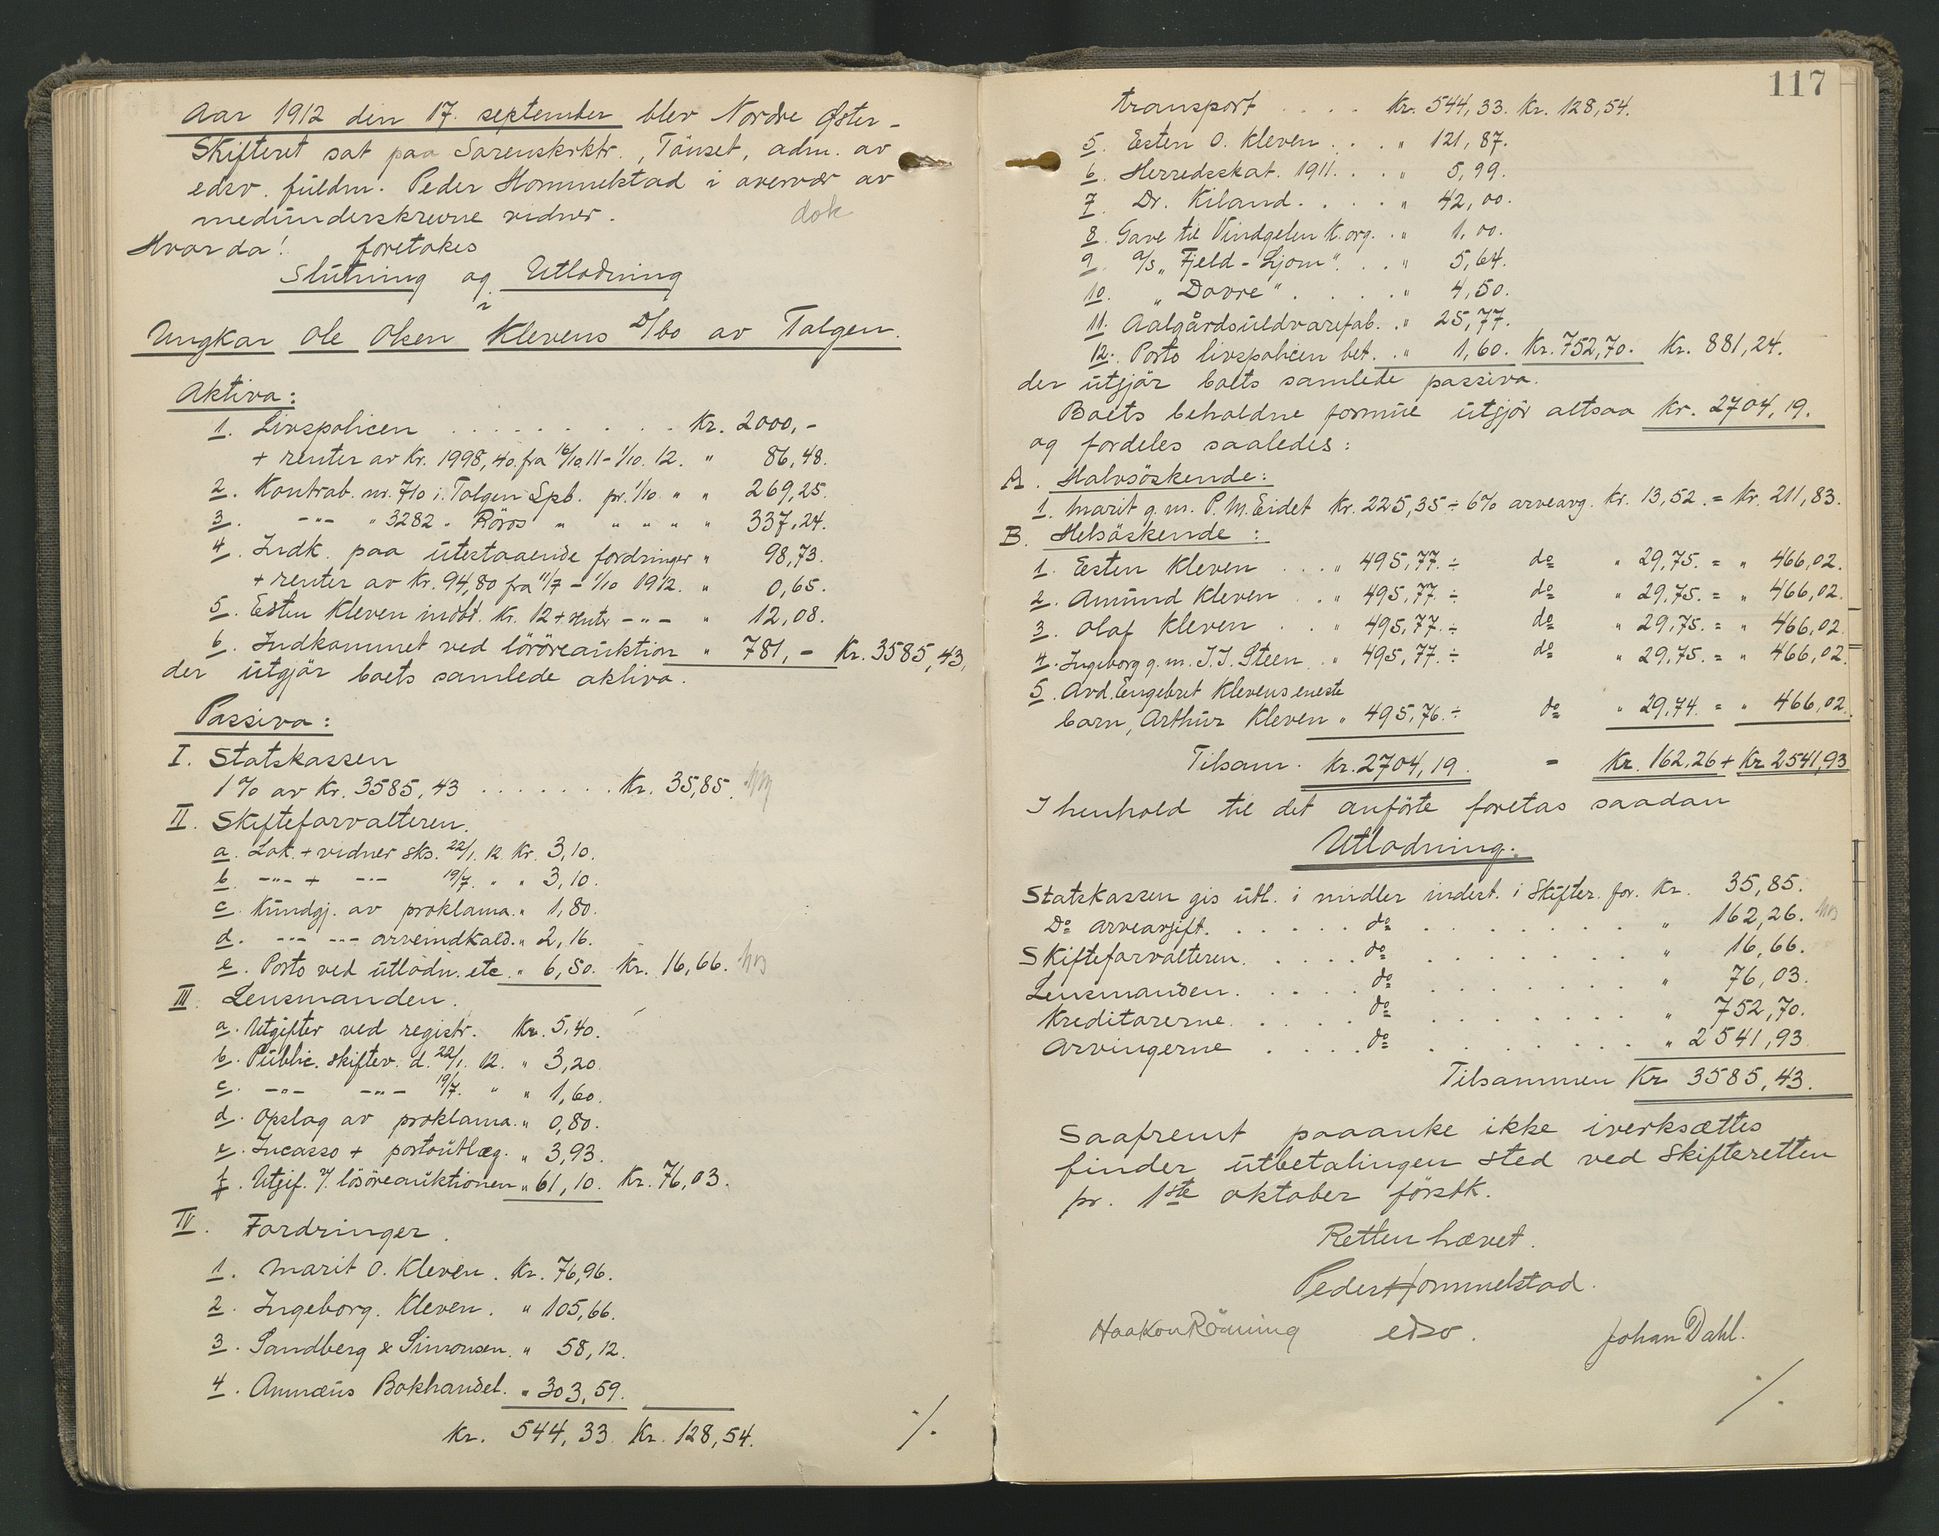 Aar 1912 den 17. september blev Nordre Øster-
Skifteret sat paa Sorenskrktr., Tönset, adm. av
edsv. fuldm. Peder Hommelstad i overvær av
medunderskrevne vidner. dok
Hvorda! foretokes
Slutning og Utlodning
i
Ungkar Ole Olsen Klevens D/bo av Tolgen.
Aktiva:
1. Livspolicen . . . . . . . . . Kr. 2000,-
+ renter av Kr. 1998,40. fra 16/10. 11 - 1/10. 12. " 86,48.
2. Kontrab. nr. 710 i Tolgen Spb. pr. 1/10. " " 269,25.
3. -"- " 3282 " Röros " " " " " 337,24.
4. Indk. paa utestaaende fordringer " 98,73.
+ renter av Kr. 94,80 fra 11/7 - 1/10 1912. " 0,65.
5. Esten Kleven indbt. Kr. 12 + renter -"- " 12,08.
6. Indkommet ved lösöreauktion " 781,- Kr. 3585,43,
der utgjör boets samlede aktiva.
Passiva:
I. Statskassen
1% av Kr. 3585,43 . . . . . . . Kr. 35,85.
II. Skifteforvalteren.
a. Lok. + vidner sks. 22/1. 12 Kr. 3,10.
b. -"- + -"- 19/7. " " 3,10.
c. Kundgj. av proklama. " 1,80.
d. -"- -"- arveindkald. " 2,16.
e. Porto ved utlodn. etc. " 6,50. Kr. 16,66.
III. Lensmanden.
a. Utgifter ved registr. Kr. 5,40.
b. Public. skiftev. d. 22/1. 12. " 3,20
c. -"- -"- 19/7. " " 1,60.
d. Opslag av proklama. " 0,80.
e. Incasso + portoutlæg. " 3,93.
f. Utgif. v/. lösöreauktionen " 61,10. Kr. 76,03.
IV. Fordringer.
1. Marit O. Kleven. Kr. 76,96.
2. Ingeborg. Kleven. " 105,66.
3. Sandberg & Simonsen. " 58,12.
4. Amnæus Bokhandel. " 303,59.
Kr. 544,33. Kr. 128,54.
./.
117
Transport . . . . Kr. 544,33. Kr. 128,54.
5. Esten O. Kleven . . . " 121,87.
6. Herredsskat. 1911. . . " 5,99.
7. Dr. Kiland. . . . . " 42,00.
8. Gave til Vindgelen K. org. . " 1,00.
9. A/S "Fjeld-Ljom". . . " 5,64.
10. "Dovre" . . . . . " 4,50.
11. Aalgårdsuldvarefab. . " 25,77.
12. Porto livspolicen bet. . " 1,60. Kr. 752,70. Kr. 881,24.
der utgjör boets samlede passiva.
Boets beholdne formue utgjör altsaa Kr. 2704,19.
og fordeles saaledes:
A. Halvsöskende:
1. Marit g. m. P. M. Eidet Kr. 225,35 ÷ 6% arveavg. Kr. 13,52. = Kr. 211,83.
B. Helsöskende:
1. Esten Kleven . . " 495,77. ÷ do " 29,75. = " 466,02.
2. Amund Kleven . . " 495,77. ÷ do " 29,75. = " 466,02.
3. Olaf Kleven . . " 495,77. ÷ do " 29,75. = " 466,02
4. Ingeborg g. m. J. J. Steen . " 495,77. ÷ do " 29,75. = " 466,02.
5. Avd. Engebret Klevens eneste
barn, Arthur Kleven " 495,76. ÷ do " 29,74. = " 466,02.
Tilsam. Kr. 2704,19. - Kr. 162,26 + Kr 2541,93
I henhold til det anförte foretas saadan
Utlodning:
Statskassen gis utl. i midler indest. i Skifter. for. Kr. 35,85.
Do arveavgift. . . . . . do . . . . . . . " 162,26.
Skifteforvalteren. . . . . do . . . . . . . " 16,66.
Lensmanden. . . . . . do . . . . . . . " 76,03.
Kreditorerne. . . . . . do . . . . . . . " 752,70.
Arvingerne . . . . do . . . . . . . " 2541,93
Tilsammen Kr 3585,43.
Saafremt paaanke ikke iverksættes
finder utbetalingen sted ved Skifteretten
pr. 1ste oktober förstk.
Retten hævet.
Peder Hommelstad.
Haakon Röning edsv. Johan Dahl.
./.